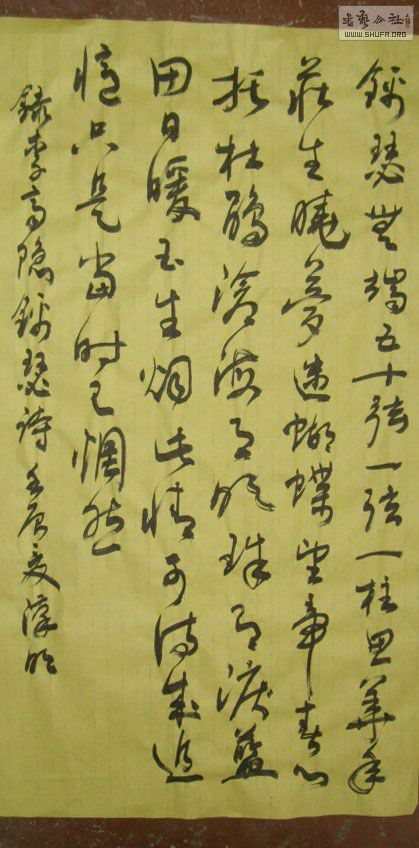 書藝公社
WWW.SHUFA.ORG
錦瑟無端五十弦一弦一柱思華年
莊生曉夢迷蝴蝶望帝春心
托杜鵑滄海月明珠有淚藍
田日暖玉生烟此情可待成追
憶只是當时已惘然
錄李商隐錦瑟詩壬辰夏